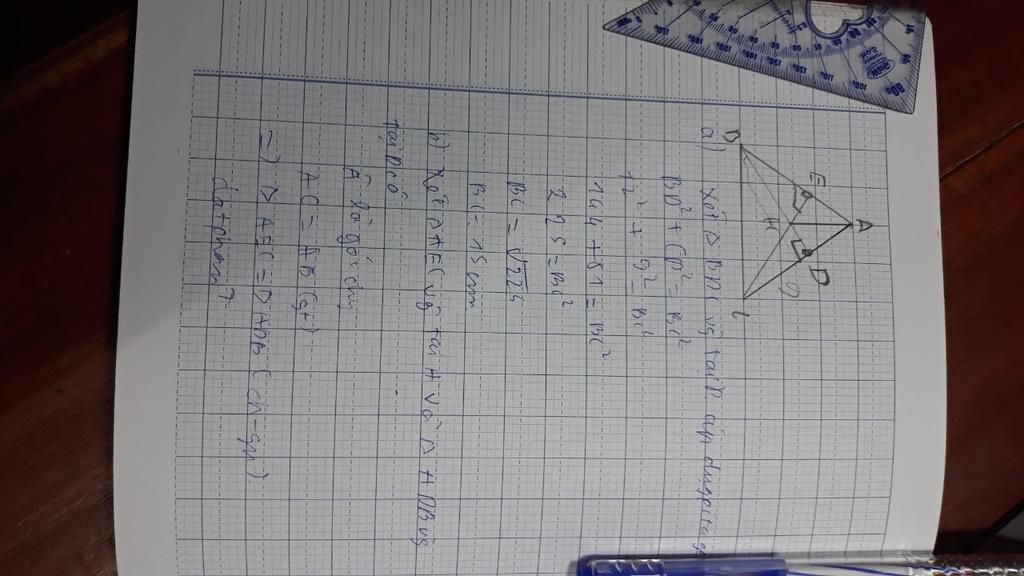 A
E
D
B
H
C
9
a) Xét △ BDC vg tại D áp dụng pitago
BD² + CD² = BC²
12² + 9² = BC²
144 + 81 = BC²
225 = BC²
BC = √225
BC = 15 cm
b) Xét △ AEC vg tại
và △ ADB vg
tại D có
Â là góc chung
AC = AB (gt)
=> △ AEC = △ ADB (ch-gn)